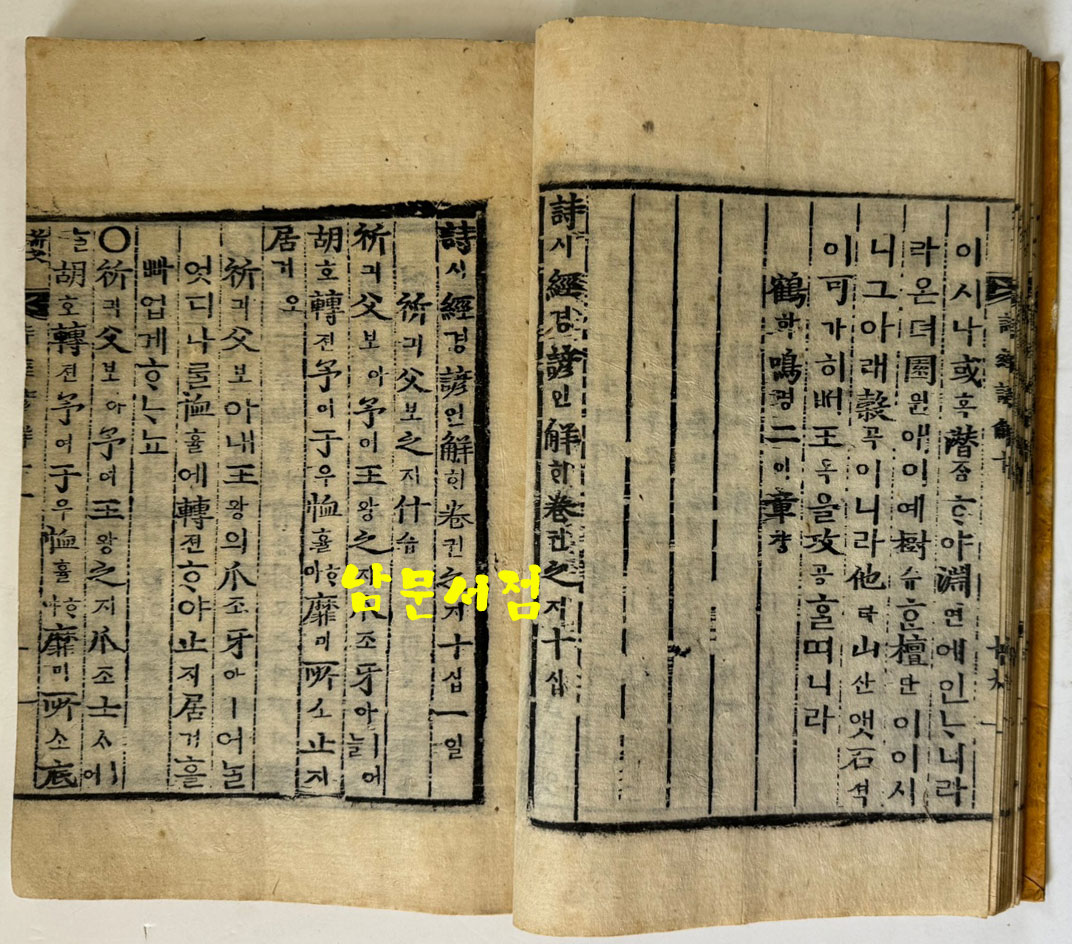 이시나或혹潛잠ᄒᆞ야淵연애인ᄂᆞ니라
라온뎌園원애이예樹슈ᄒᆞᆫ檀단이이시
니그아래穀곡이니라他타山산앳石셕
이可가히ᄡᅥ玉옥을攻공홀띠니라
鶴학鳴명二이章쟝
詩시經경諺언解ᄒᆡ卷권之지十십
詩시經경諺언解ᄒᆡ卷권之지十십一일
祈긔父보之지什습
祈긔父보아予이王왕之지爪조牙아ㅣ어ᄂᆞᆯ
胡호轉젼予이于우恤휼ᄒᆞ야靡미所소止지
居거오
祈긔父보아내王왕의爪조牙아ㅣ어ᄂᆞᆯ
엇디나ᄅᆞᆯ恤휼에轉젼ᄒᆞ야止지居거홀
빠업게ᄒᆞᄂᆞ뇨
○祈긔父보아予여王왕之지爪조士ᄉᆞㅣ어
ᄂᆞᆯ胡호轉젼予여于우恤휼ᄒᆞ야靡미所소底
남문서점